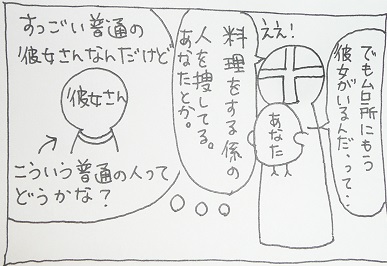 でも台所にもう
彼女がいるんだ、って…
ええ!
あなた
料理をする係の
人を捜してる。
あなたとか。
すっごい普通の
彼女さんなんだけど
彼女さん
こういう普通の人って
どうかな?